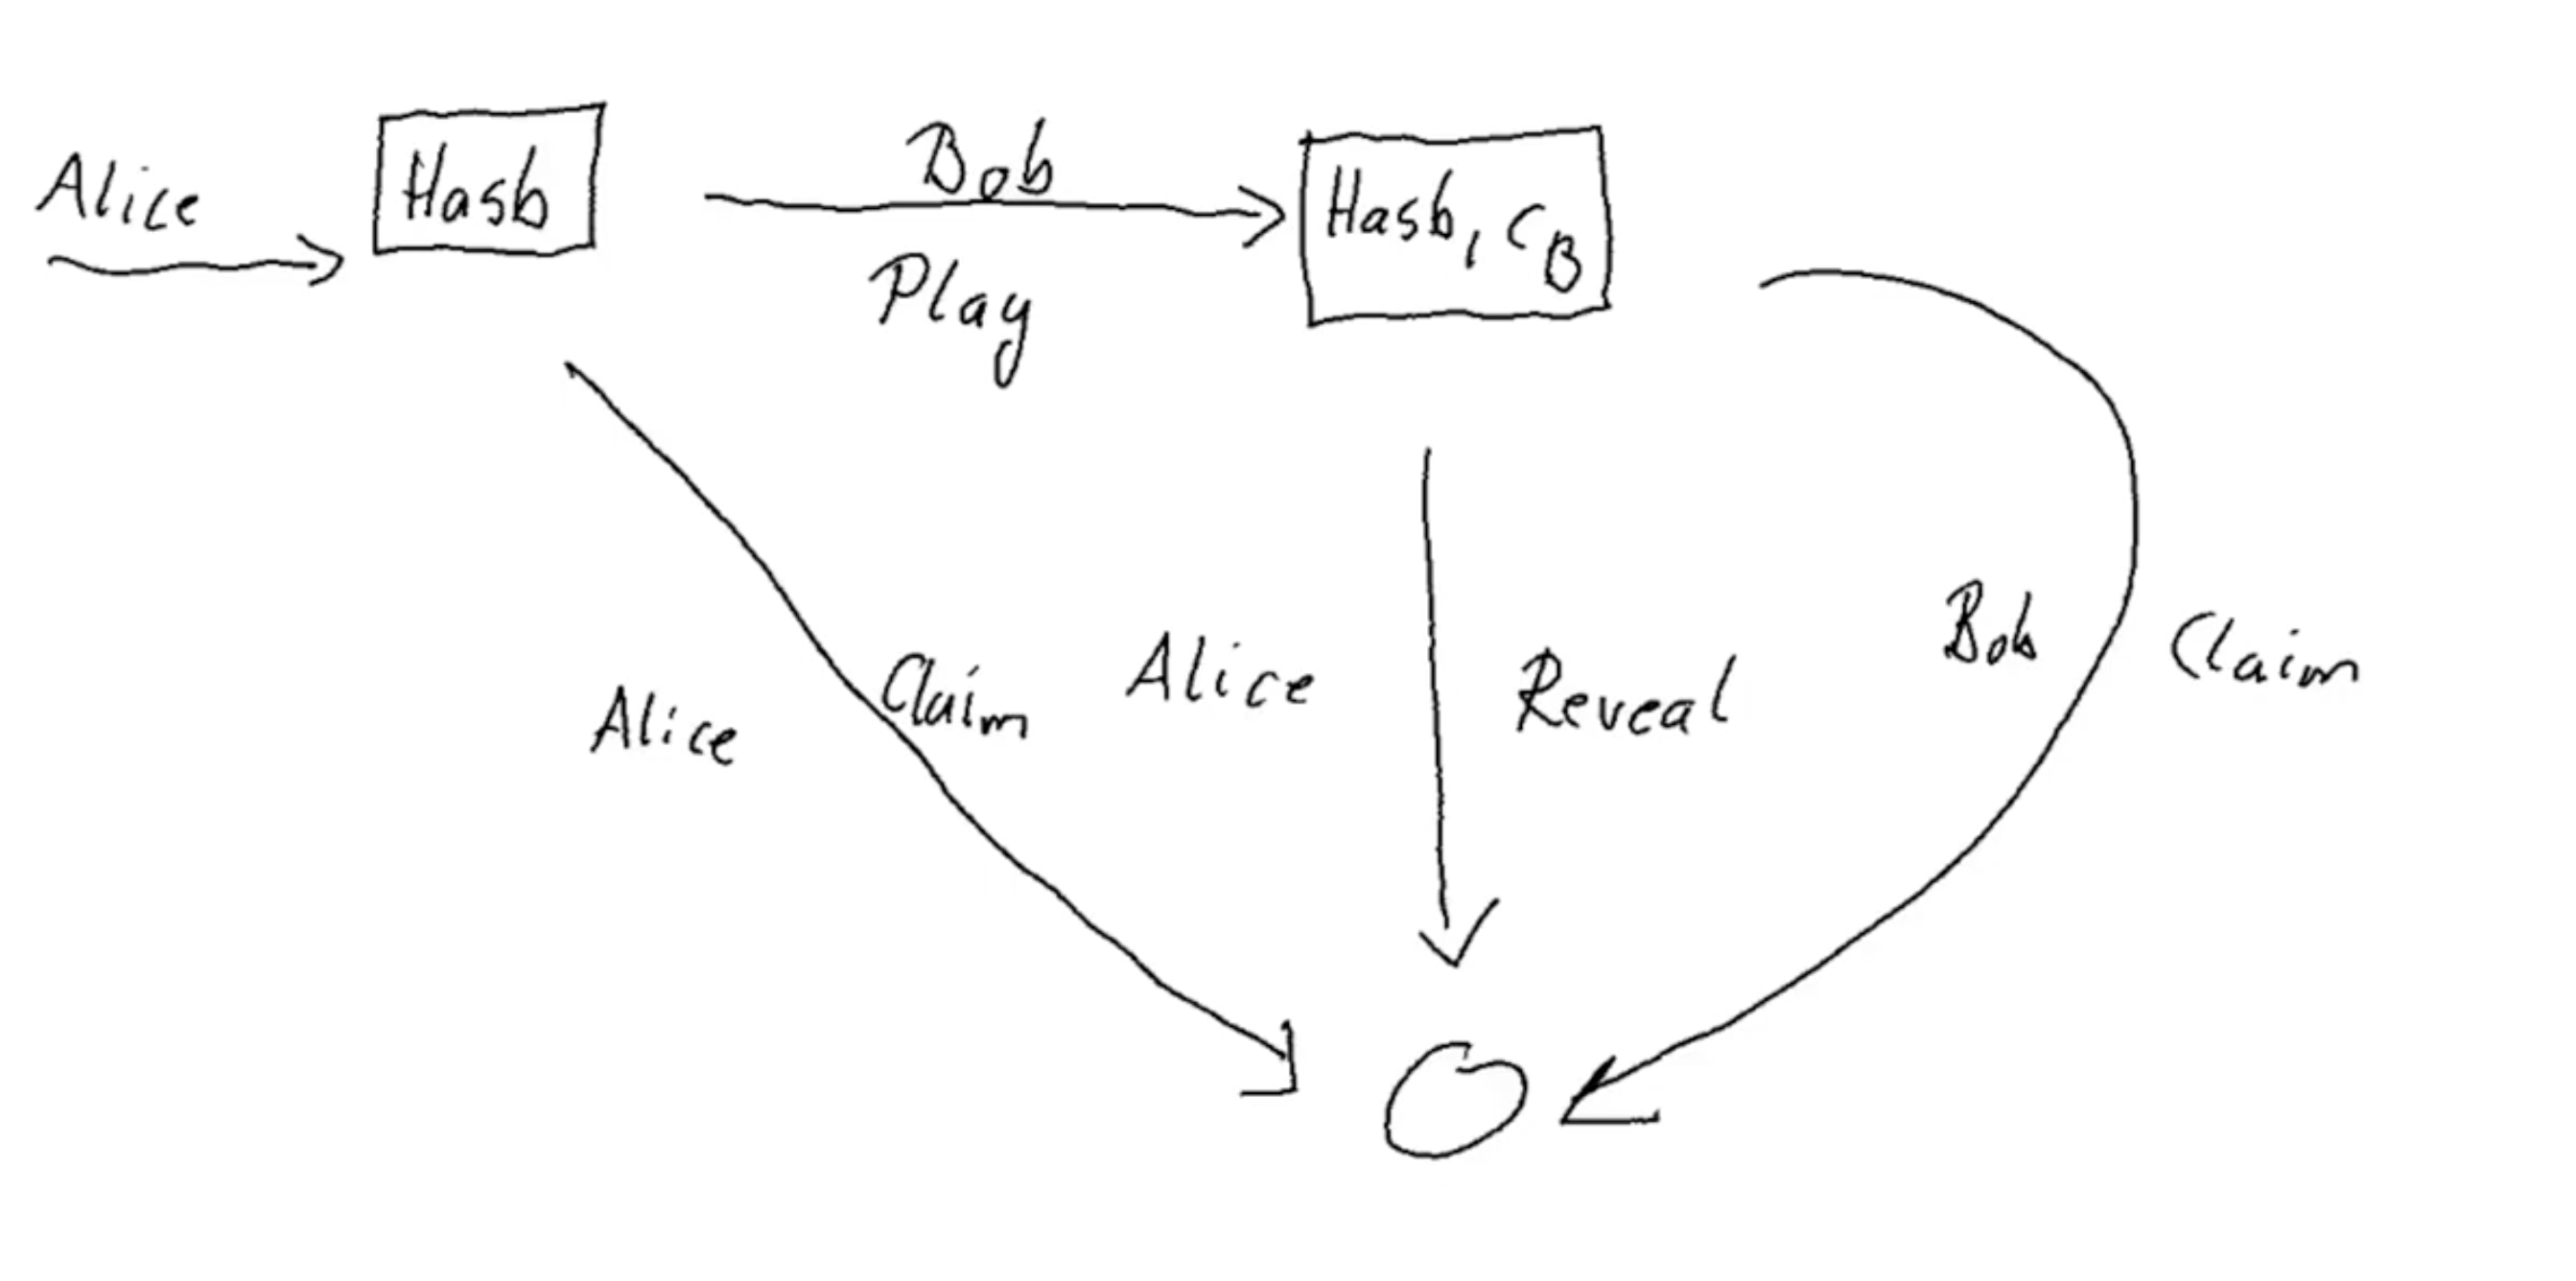 Alice
Hash
Bob
Play
Hash, CB
Alice
Claim
Alice
Reveal
Bob
Claim